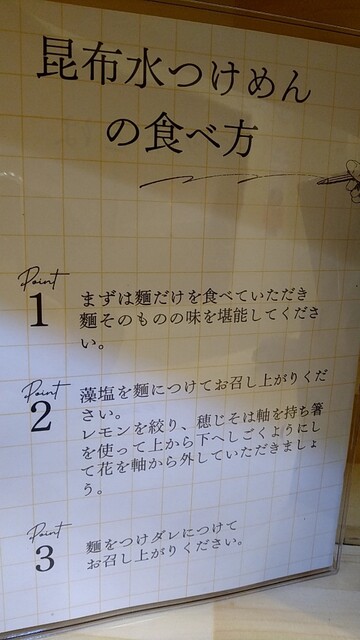 昆布水つけめん
の食べ方
Point
1
まずは麺だけを食べていただき
麺そのものの味を堪能してくださ
い。
Point
2
藻塩を麺につけてお召し上がりくだ
さい。
レモンを絞り、穂じそは軸を持ち箸
を使って上から下へしごくようにし
て花を軸から外していただきましょ
う。
Point
3
麺をつけダレにつけて
お召し上がりください。